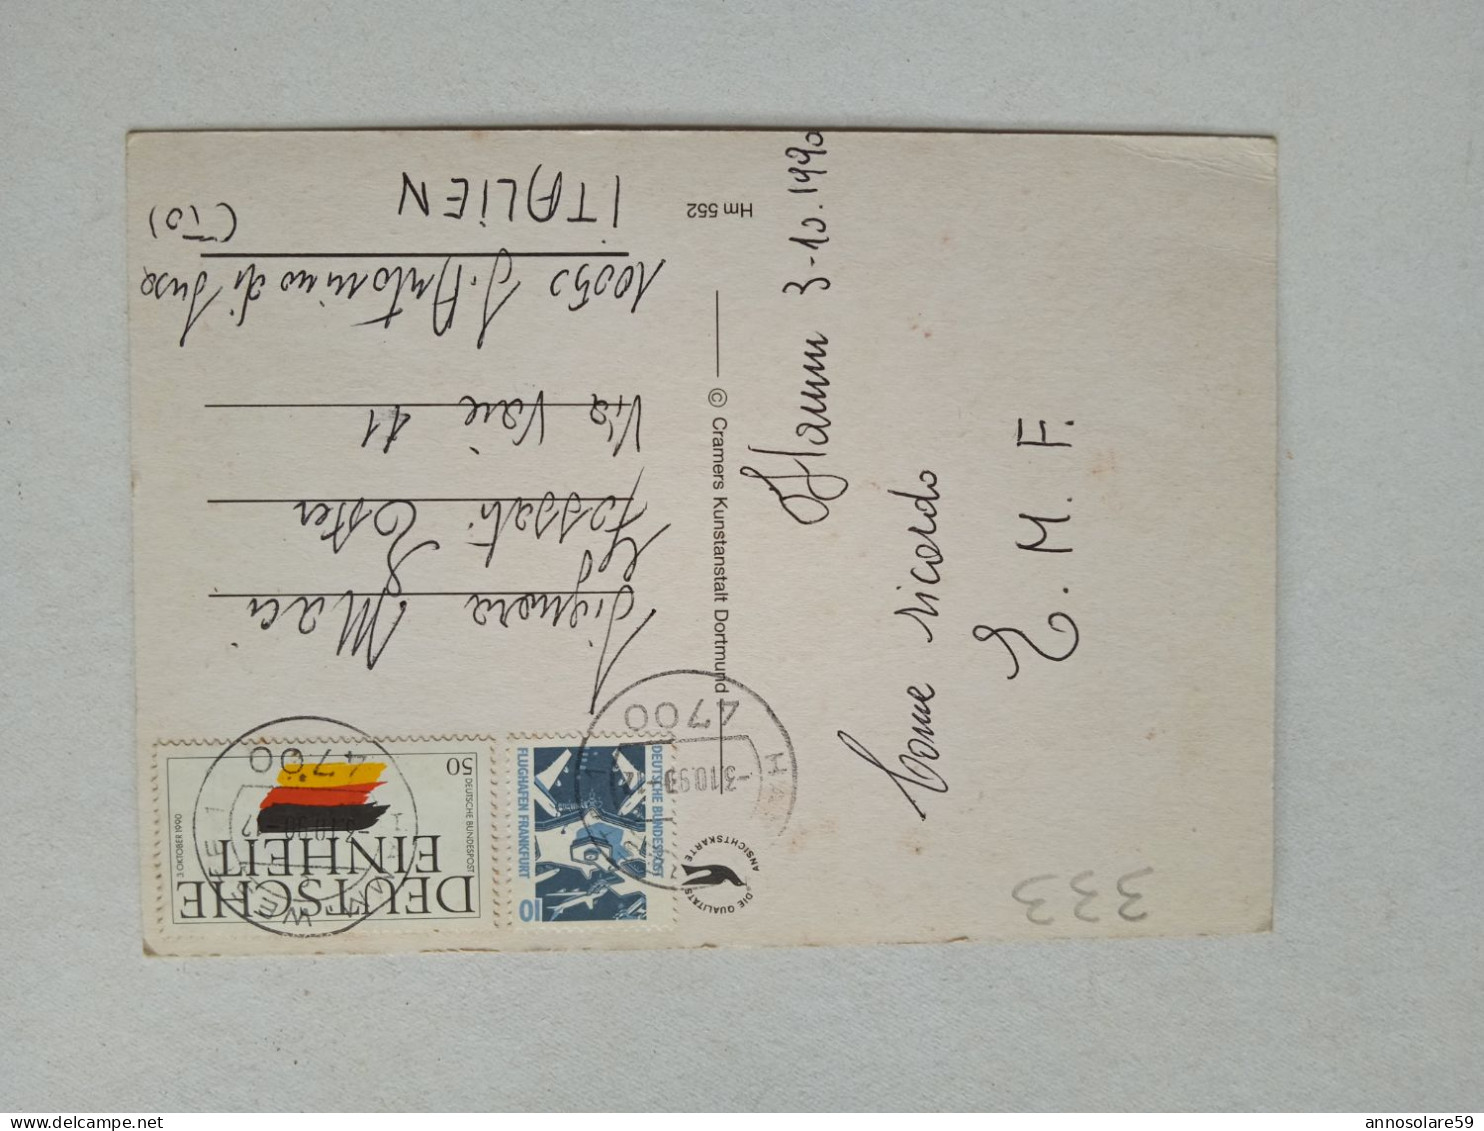 Hamm 3-10.1990
Come ricordo
E. M. F.
333
Hm 552
© Cramers Kunstanstalt Dortmund
DIE QUALITÄTS
ANSICHTSKARTE
DEUTSCHE BUNDESPOST
FLUGHAFEN FRANKFURT
10
4700
-3.10.90-12
3.OKTOBER 1990
DEUTSCHE
EINHEIT
DEUTSCHE BUNDESPOST
50
4700
-3.10.90-12
Signora Maci
Fossati Ester
Via Vaie 11
10050 S. Antonino di Susa
(TO)
ITALIEN
www.delcampe.net
annosolare59